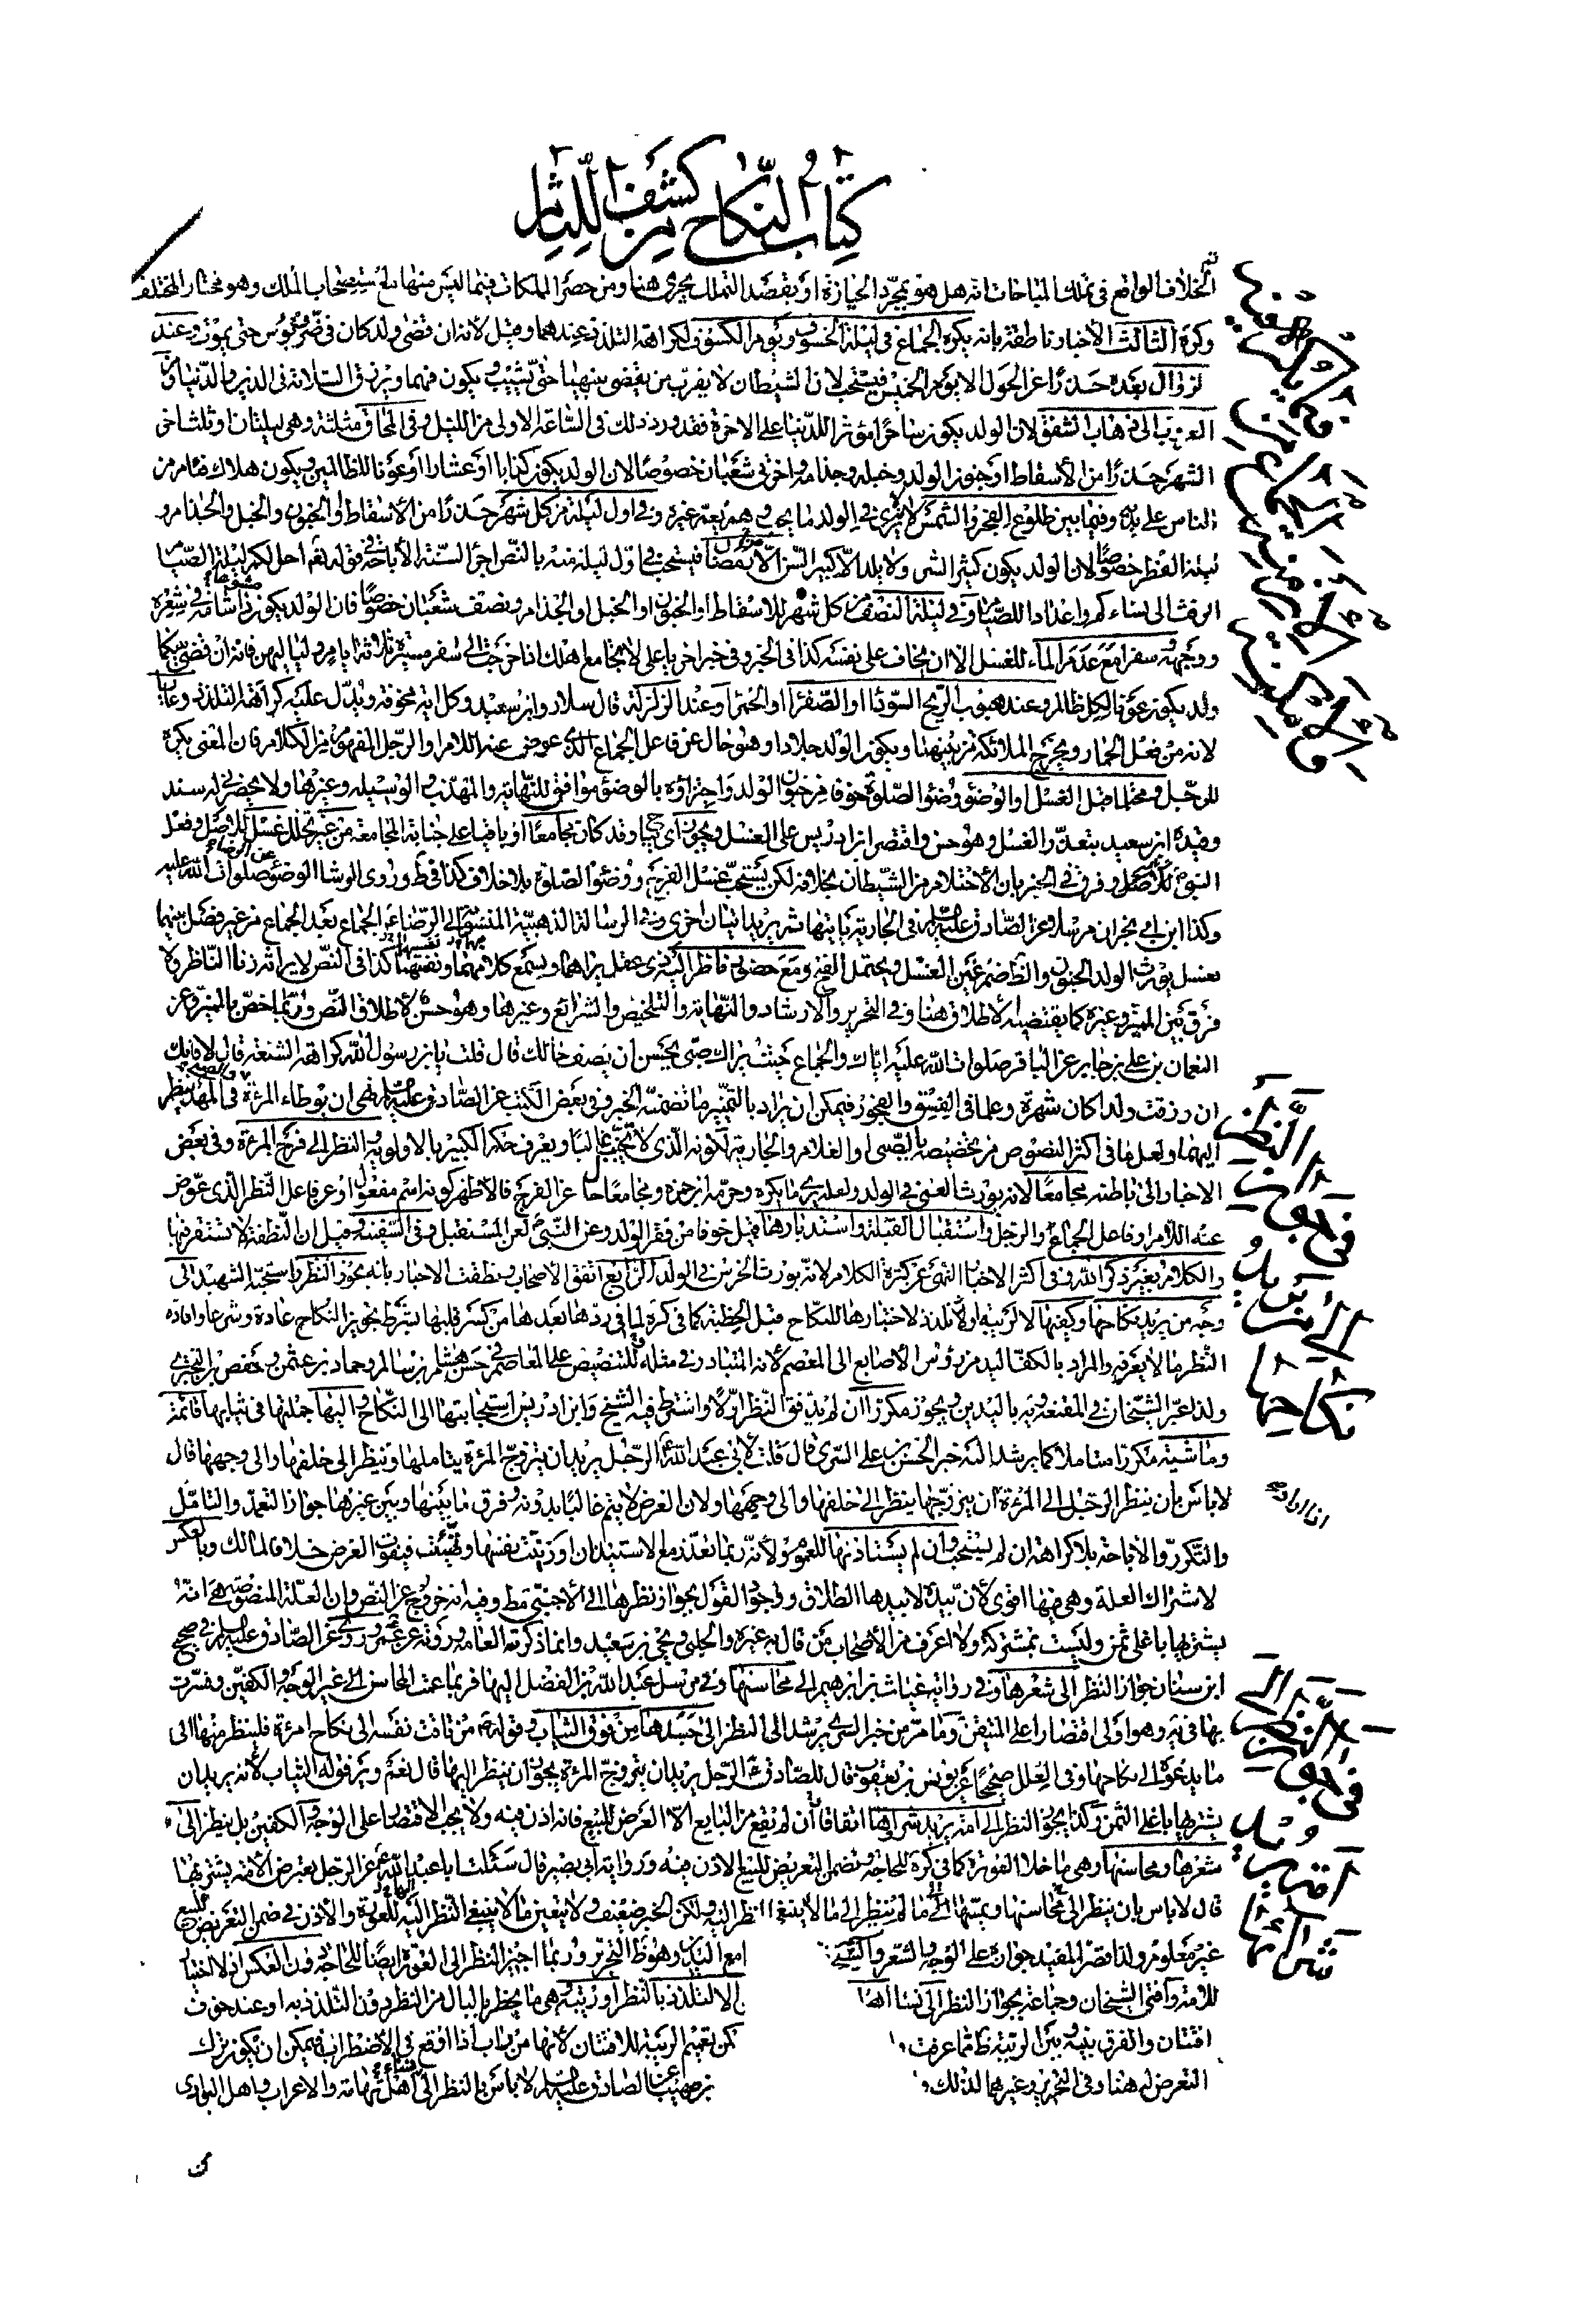 كتاب النكاح من كشف اللثام
الخلاف الواقع في تملك المباحات انه هل هو بمجرد الحيازة او بقصد التملك يجري هنا ومن حصر المملكات فيما ليس منها استصحاب الملك وهو مختار المختلف
وكره الثالث الاخبار ناطقة بانه يكره الجماع في ليلة الخسوف ويوم الكسوف لكراهة التلذذ عندهما وقيل لانه ان قضى ولد كان في ضر وبؤس حتى يموت وعند
الزوال بعده حذرا عن الحول الا يوم الخميس فيستحب لان الشيطان لا يقرب من يقضى بينهما حتى يشيب ويكون فهما ويرزق السلامة في الدين والدنيا ومن
الغروب الى ذهاب الشفق لان الولد يكون ساحرا مؤثرا للدنيا على الاخرة فقد ورد ذلك في الساعة الاولى من الليل وفي المحاق مثلثة وهي ليلتان او ثلث اخر
الشهر حذرا من الاسقاط او جنون الولد وخبله وجذامه واخر شعبان خصوصا لان الولد يكون كذابا او عشارا او عونا للظالمين ويكون هلاك فئام من
الناس على يده وفيما بين طلوع الفجر والشمس لا يرى في الولد ما يحب وهم يعم غيره وفي اول ليلة من كل شهر حذرا من الاسقاط او الجنون والخبل والجذام و
ليلة الفطر خصوصا لان الولد يكون كثير الشر ولا يلد الا كبير السن الا رمضان فيستحب في اول ليلة منه بالنص اجراء لسنة الاباحة في قوله تعم احل لكم ليلة الصيام
الرفث الى نساءكم واعدادا للصيام وفي ليلة النصف من كل شهر للاسقاط او الجنون او الخبل او الجذام ونصف شعبان خصوصا فان الولد يكون ذا شامة في شعره
ووجهه سفرا مع عدم الماء للغسل الا ان يخاف على نفسه كذا في الخبر وفي خبر اخر يا على لا تجامع اهلك اذا خرجت الى سفر مسيرة ثلاثة ايام ولياليهن فانه ان قضى بينكما
ولد يكون عونا لكل ظالم وعند هبوب الريح السوداء او الصفراء او الحمراء وعند الزلزلة قال سلار وابن سعيد وكل اية مخوفة ويدل عليه كراهة التلذذ وعاريا
لانه من فعل الحمار ويخرج الملائكة من بينهما ويكون الولد جلادا وهو حال عن فاعل الجماع الذي عوض عنه اللام او الرجل المفهوم من الكلام فان المعنى يكره
للرجل ومحتلما قبل الغسل او الوضوء وضوء الصلوة خوفا من جنون الولد واجتزاؤه بالوضوء موافق للنهاية والمهذب الوسيلة وغيرها ولا يحضرني له سند
وقيده ابن سعيد بتعذر الغسل وهو حسن واقتصر ابن ادريس على الغسل ويجوز اي يجيئا وقد كان مجامعا او باقيا على جنابة المجامعة من غير تخلل غسل للاصل وفعل
النبي للاصل وفرق في الخبر بان الاحتلام من الشيطان بخلافه لكن يستحب غسل الفرج ووضوء الصلوة بلا خلاف كذا في ط وروى الوشا الوضوء عن الرضا صلوات الله عليه
وكذا ابن ابي نجران مرسلا عن الصادق عليه السلام في الجارية ياتيها ثم يريد اتيان اخرى وفي الرسالة الذهبية المنسوبة الى الرضا الجماع بعد الجماع من غير فصل بينهما
بغسل يورث الولد الجنون والظاهر ضم غين الغسل ويحتمل الفتح ومع حضور ناظر اليه ذي عقل يراهما ويسمع كلامهما ونفسهما كذا في النص لايراثه زنا الناظر ولا
فرق بين المميز وغيره كما يقتضيه الاطلاق هنا وفي التحرير والارشاد والنهاية والتلخيص والشرائع وغيرها وهو حسن لاطلاق النص وربما خص بالمميز وعن
النعمان بن علي بن جابر عن الباقر صلوات الله عليه اياك والجماع حيث يراك صبي يحسن ان يصف حالك قال قلت يابن رسول الله كراهة الشنعة قال لا فانك
ان رزقت ولدا كان شهرة وعلما في الفسق والفجور فيمكن ان يراد بالتميز ما تضمنه الخبر وفي بعض الكتب عن الصادق عليه السلام نهى ان يوطأ المرءة والصبي في المهد ينظر
اليهما ولعل ما في اكثر النصوص من تخصيصه بالصبي او الغلام والجارية لكونه الذي لا يجتنب غالبا ويعرف حكم الكبير بالاولوية والنظر الى فرج المرءة وفي بعض
الاخبار الى باطنه مجامعا لانه يورث العمى في الولد ولعله يرى ما يكره وحرمه ابن حمزة ومجامعا حال عن الفرج فالاظهر كونه اسم مفعول او عن فاعل النظر الذي عوض
عنه اللام او فاعل الجماع او الرجل واستقبال القبلة واستدبارها قيل خوفا من فقر الولد وعن النبي لعن المستقبل وفي السفينة وقيل ان النطفة لا تستقر فيها
والكلام بغير ذكر الله وفي اكثر الاخبار النهى عن كثرة الكلام لانه يورث الخرس في الولد الرابع اتفق الاصحاب ونطقت الاخبار بانه يجوز النظر واستحبه الشهيد الى
وجه من يريد نكاحها وكفيها لا لريبة او تلذذ لاختبارها للنكاح قبل الخطبة كما في كره لما في ردها بعدها من كسر قلبها بشرط تجويز النكاح عادة وشرعا وافادة
النظر ما لا يعرفه والمراد بالكف اليد من رؤس الاصابع الى المعصم لانه المتبادر في مثله وللتنصيص على المعاصم في حسن هشام بن سالم وحماد بن عثمن وحفص بن البختري
ولذا عبر الشيخان في المقنعة ويه باليدين ويجوز مكررا ان لم يفد النظر اولا واشترط فيه الشيخ وابن ادريس استجابتها الى النكاح واليها جملتها في ثيابها قائمة
وماشية مكررا متاملا كما يرشد اليه خبر الحسن بن على السري قال قلت لابي عبد الله الرجل يريد ان يتزوج المرءة يتاملها وينظر الى خلفها والى وجهها قال
لا باس بان ينظر الرجل الى المرءة ان يتزوجها ينظر الى خلفها والى وجهها ولان الغرض لا يتم غالبا بدونه وفرق ما بينها وبين غيرها جواز التعمد والتامل
والتكرر والاباحة بلا كراهة ان لم يستحب وان لم يستاذنها للعموم ولانه ربما تعذر مع الاستيذان او زينت نفسها وتهيئت فيفوت الغرض خلافا لمالك وبالعكس
لاشتراك العلة وهي فيها اقوى لان بيده لا بيدها الطلاق ووجوب القول بجواز نظرها الى الاجنبي مط وفيه انه خروج عن النص وان العلة المنصوصة هي انه
يشتريها باغلى ثمن وليست بمشتركة ولا اعرف من الاصحاب من قال به غيره والحلبي ويحيى بن سعيد وانما ذكرته العامة وروته عن عمر وروى عن الصادق عليه السلام في صحيح
ابن سنان جواز النظر الى شعرها وفي رواية غياث بن ابرهيم الى محاسنها وفي مرسل عبد الله بن الفضل اليها فربما عمت المحاسن الى غير الوجه والكفين وفسرت
بها في يه وهو اولى اقتصارا على المتيقن وما مر من خبر السري يرشد الى النظر الى جسدها من فوق الثياب وقوله من تاقت نفسه الى نكاح امرءة فلينظر منها الى
ما يدعوه الى نكاحها وفي العلل صحيحا عن يونس بن يعقوب قال للصادق الرجل يريد ان يتزوج المرءة يجوز ان ينظر اليها قال نعم ويرقق له الثياب لانه يريد ان
يشتريها باغلى الثمن وكذا يجوز النظر الى امة يريد شرائها اتفاقا ان لم يقع من البايع الا العرض للبيع فانه اذن فيه ولا يجب الاقتصار على الوجه والكفين بل ينظر الى
شعرها ومحاسنها وهي ما خلا العورة كما في كره للحاجة وتضمن التعريض للبيع الاذن فيه ورواية ابي بصير قال سئلت ابا عبد الله عن الرجل يعترض الامة يشتريها
قال لا باس بان ينظر الى محاسنها ويمسها ما لم ينظر الى ما لا ينبغي النظر اليه ولكن الخبر ضعيف ولا يتعين ما لا ينبغي النظر اليه للعورة والاذن في ضمن التعريض للبيع
غير معلوم ولذا قصر المفيد جوازه على الوجه والشعر
مع اليدين وهو ظ التحرير وربما اجيز النظر الى العورة ايضا للحاجة دون العكس اذ لا اختيار
للامة وافتى الشيخان وجماعة بجواز النظر الى نساء اهل
الا لتلذذ بالنظر او ريبة وهي ما يخطر بالبال من النظر دون التلذذ به او عند خوف
افتتان والفرق بينه وبين الريبة ظ مما عرفت
يمكن تعميم الريبة للافتتان لانها من راب اذا اوقع في الاضطراب فيمكن ان يكون ترك
التعرض له هنا وفي التحرير وغيرهما لذلك
بن صهيب عن الصادق عليه السلام لا باس بالنظر الى نساء اهل تهامة والاعراب واهل البوادي
النظر
في جواز
الى من يريد
نكاحها
اذا اراد
في جواز
النظر الى
امة يريد
شرائها